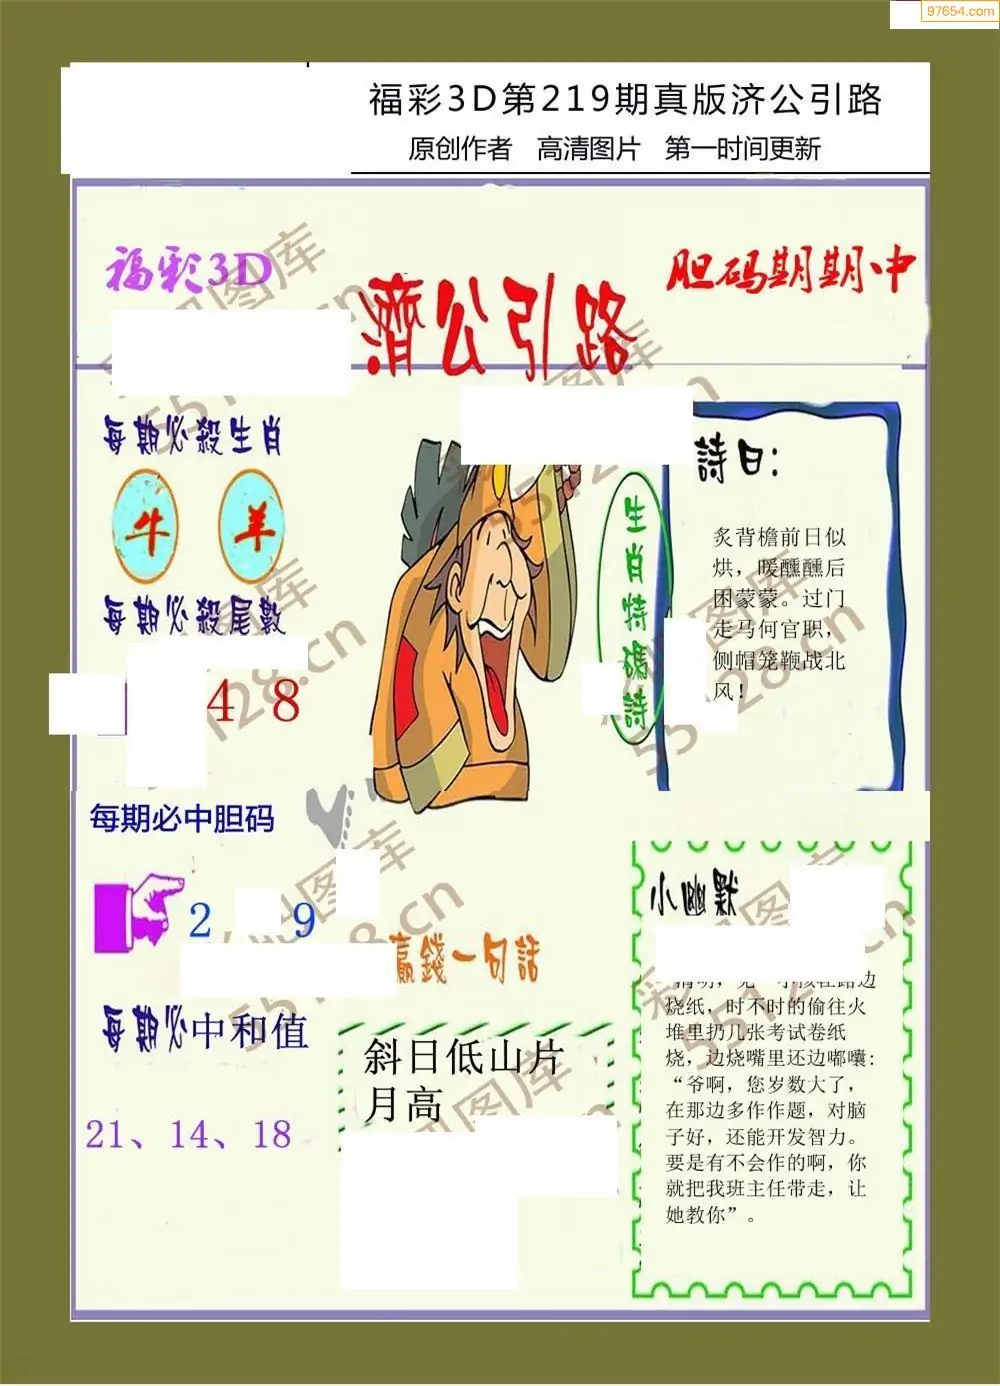 97654.com
福彩3D第219期真版济公引路
原创作者 高清图片 第一时间更新
福彩3D
濟公引路
胆码期期中
每期必殺生肖
牛 羊
每期必殺尾數
4 8
每期必中胆码
2 9
每期必中和值
21、14、18
生肖特碼詩
詩曰：
炙背檐前日似
烘，暖醺醺后
困蒙蒙。过门
走马何官职，
侧帽笼鞭战北
风！
贏錢一句話
斜日低山片
月高
小幽默
烧纸，时不时的偷往火
堆里扔几张考试卷纸
烧，边烧嘴里还边嘟囔：
“爷啊，您岁数大了，
在那边多作作题，对脑
子好，还能开发智力。
要是有不会作的啊，你
就把我班主任带走，让
她教你”。
55128.cn
55128.cn
55128.cn